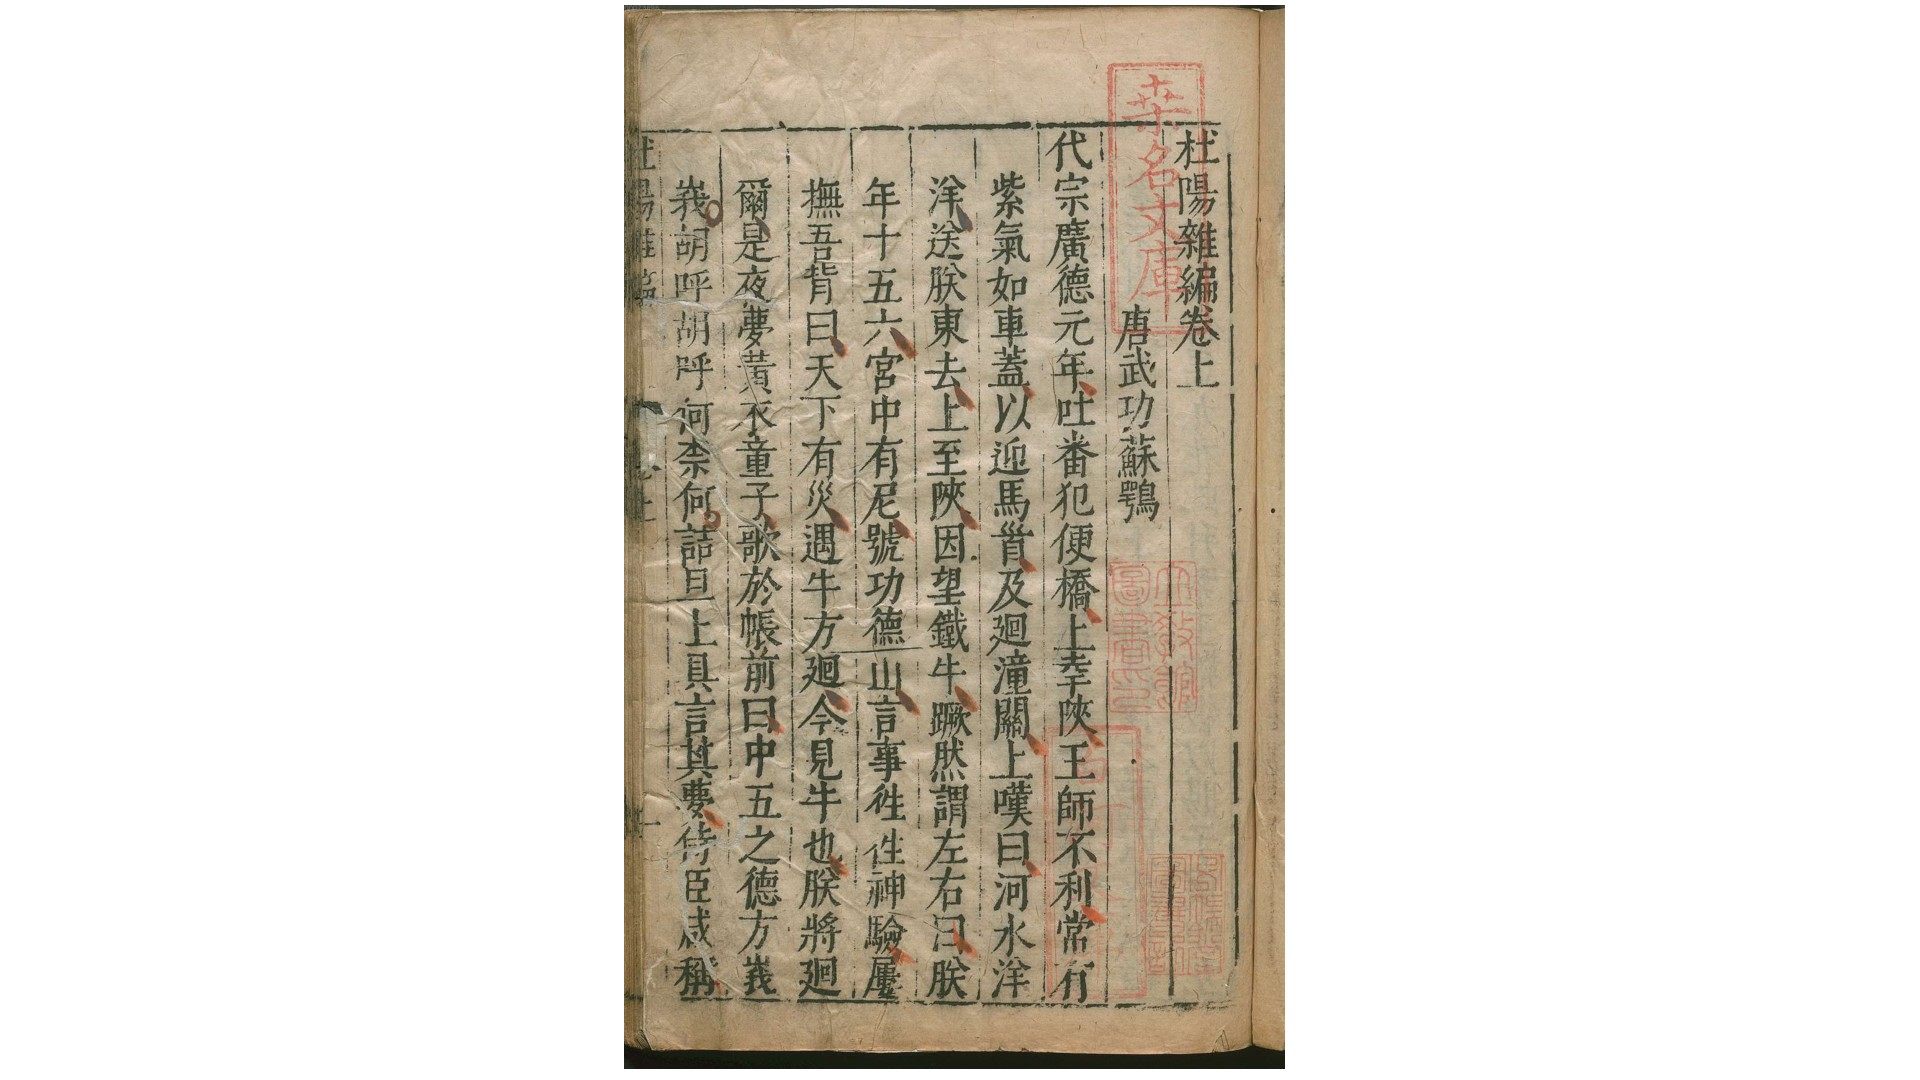 杜陽雜編卷上
唐武功蘇鶚
代宗廣德元年吐番犯便橋上幸陜王師不利常有
紫氣如車蓋以迎馬首及廻潼關上嘆曰河水洋
洋送朕東去上至陜因望鐵牛蹶然謂左右曰朕
年十五六宮中有尼號功德山言事徃徃神驗屢
撫吾背曰天下有災遇牛方廻今見牛也朕將廻
爾是夜夢黃衣童子歌於帳前曰中五之德方峩
峩胡呼胡呼何柰何詰旦上具言其夢侍臣咸稱
杜陽雜編
卷上
一
桒名文庫
立教館
圖書印